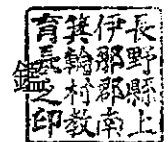 長野縣上
伊那郡南
箕輪村教
育長之印
鑑